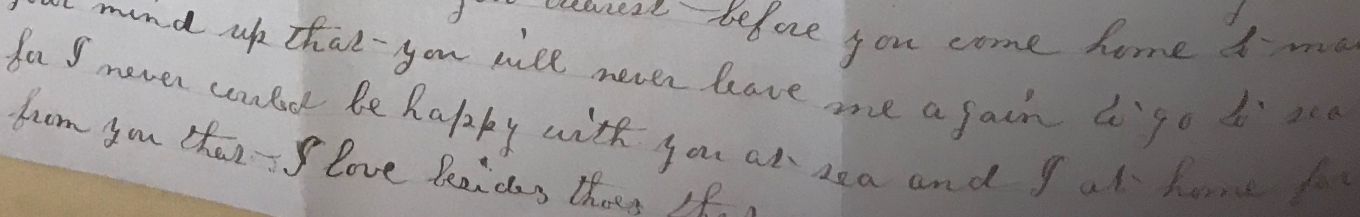 dearest - before you come home to
mind up that - you will never leave me again to go to sea
for I never could be happy with you at sea and I at home far
from you that - I love besides thoes